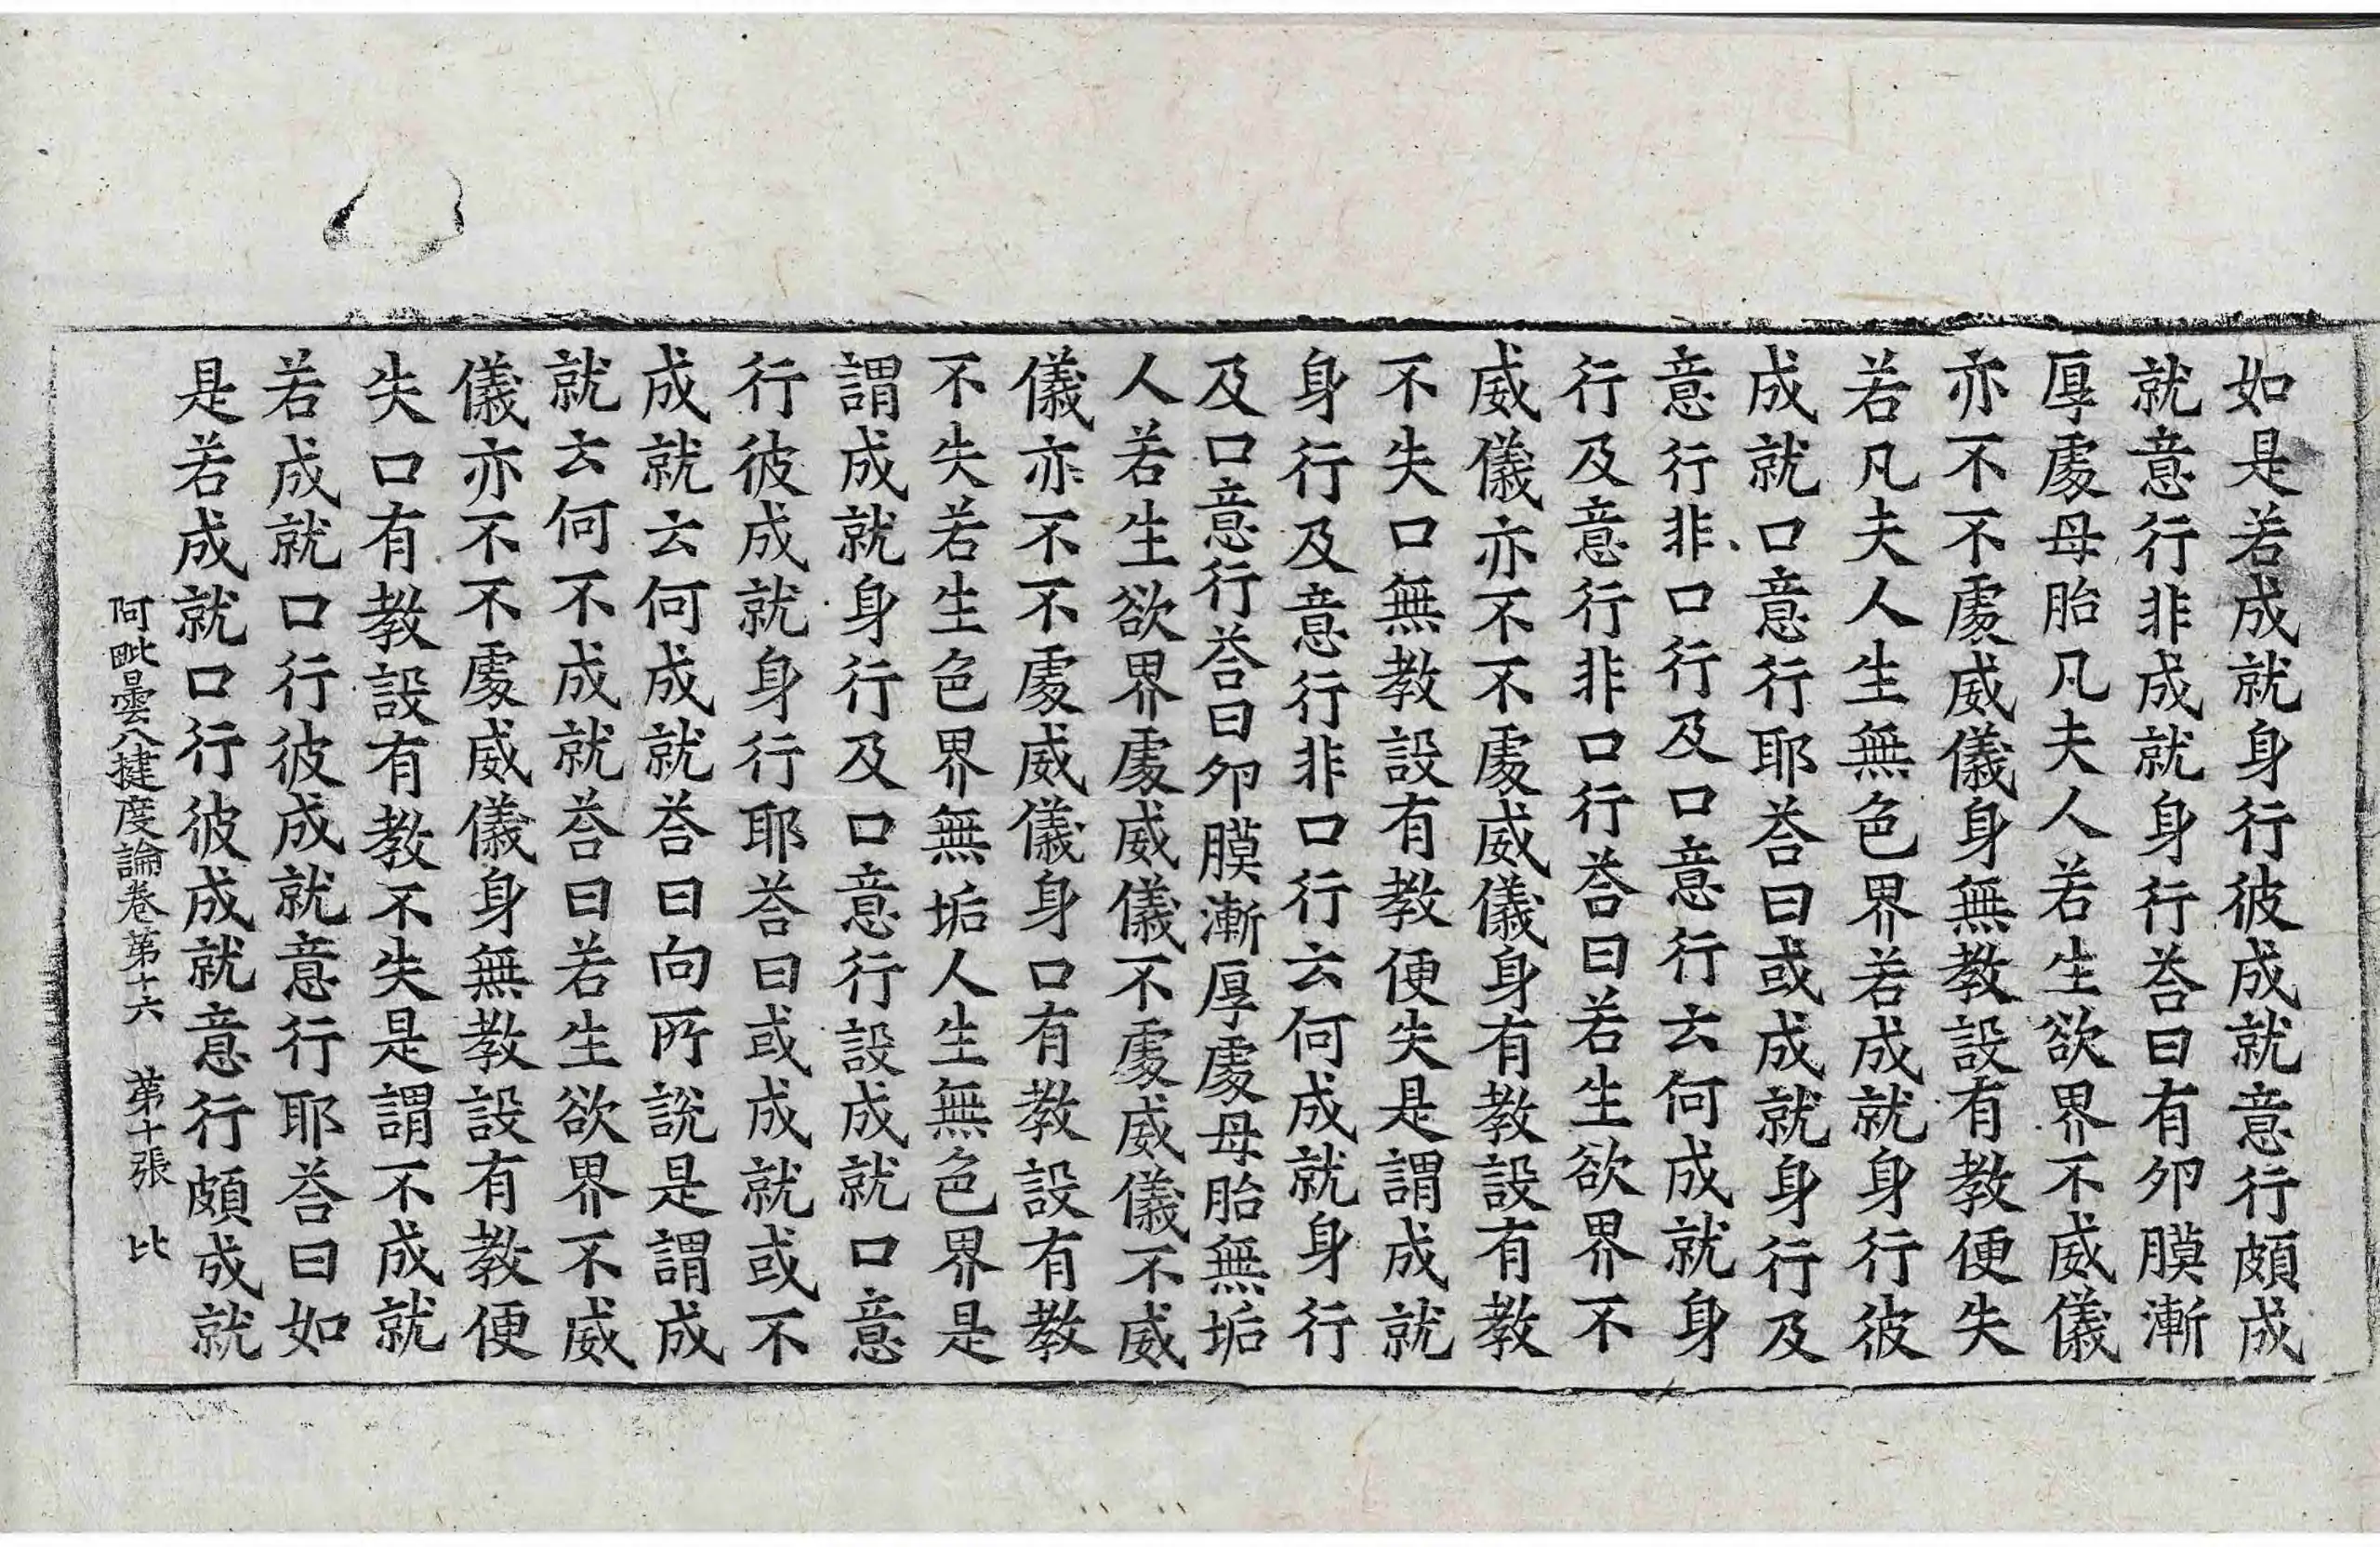 如是若成就身行彼成就意行頗成
就意行非成就身行荅曰有夘膜漸
厚處母胎凡夫人若生欲界不威儀
亦不不處威儀身無教設有教便失
若凡夫人生無色界若成就身行彼
成就口意行耶荅曰或成就身行及
意行非口行及口意行云何成就身
行及意行非口行荅曰若生欲界不
威儀亦不不處威儀身有教設有教
不失口無教設有教便失是謂成就
身行及意行非口行云何成就身行
及口意行荅曰夘膜漸厚處母胎無垢
人若生欲界處威儀不處威儀不威
儀亦不不處威儀身口有教設有教
不失若生色界無垢人生無色界是
謂成就身行及口意行設成就口意
行彼成就身行耶荅曰或成就或不
成就云何成就荅曰向所說是謂成
就云何不成就荅曰若生欲界不威
儀亦不不處威儀身無教設有教便
失口有教設有教不失是謂不成就
若成就口行彼成就意行耶荅曰如
是若成就口行彼成就意行頗成就
阿毗曇八揵度論卷苐十六 苐十張 比